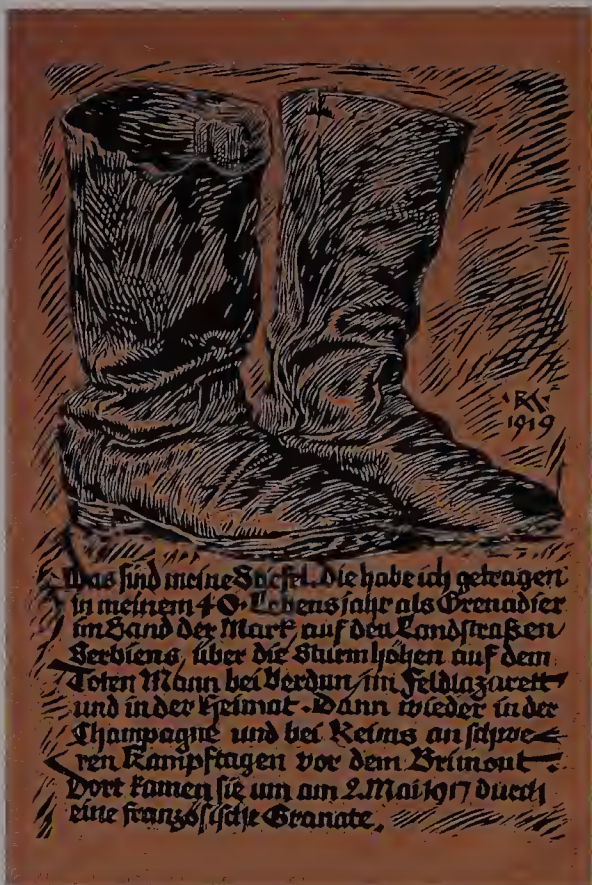 RK
1919
Das sind meine Stiefel. Die habe ich getragen
in meinem 40. Lebensjahr als Grenadier
im Sand der Mark auf den Landstraßen
Serbiens, über die Sturmhöhen auf dem
Toten Mann bei Verdun, im Feldlazarett
und in der Heimat. Dann wieder in der
Champagne und bei Reims an schwe-
ren Kampftagen vor dem Brimont.
Dort kamen sie um am 2. Mai 1917 durch
eine französische Granate.